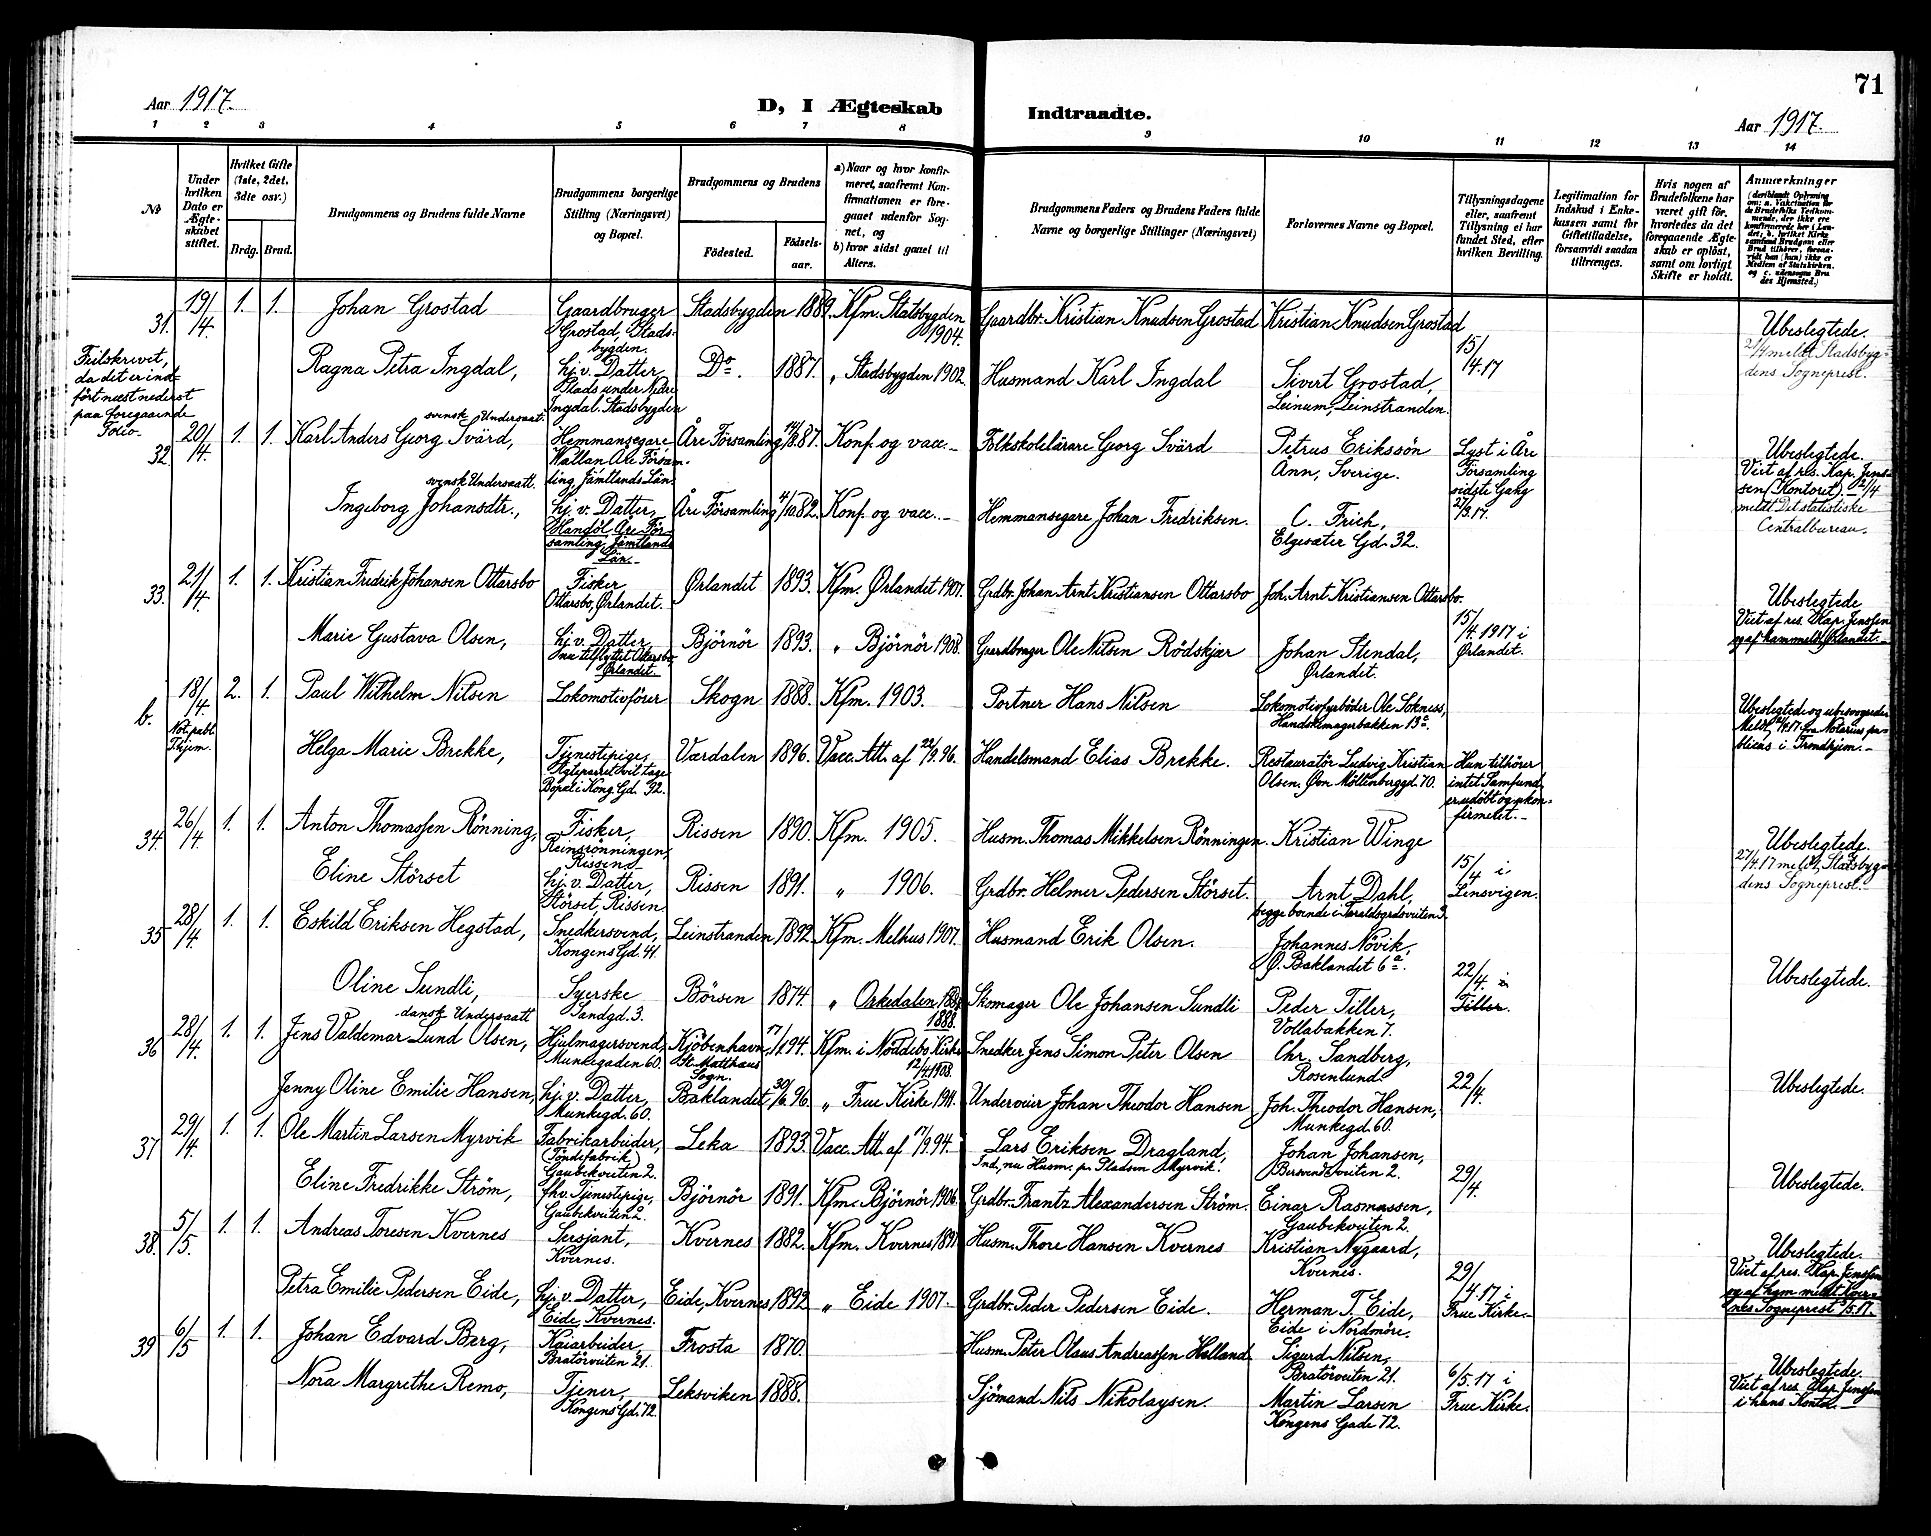 71
Aar 1917.
D, I Ægteskab Indtraadte.
Aar 1917.
1 2 3 4 5 6 7 8 9 10 11 12 13 14
No
Under hvilken Dato er Ægteskabet stiftet.
Hvilket Gifte (1ste, 2det, 3die osv.)
Brdg. Brud.
Brudgommens og Brudens fulde Navne
Brudgommens borgerlige Stilling (Næringsvei) og Bopæl.
Brudgommens og Brudens
Fødested.
Fødselsaar.
a) Naar og hvor konfirmeret, saafremt Konfirmationen er foregaaet udenfor Sognet, og
b) hvor sidst gaaet til Alters.
Brudgommens Faders og Brudens Faders fulde Navne og borgerlige Stillinger (Næringsvei)
Forlovernes Navne og Bopæl.
Tillysningsdagene eller, saafremt Tillysning ei har fundet Sted, efter hvilken Bevilling.
Legitimation for Indskud i Enkekassen samt for Giftetilladelse, forsaavidt saadan tiltrænges.
Hvis nogen af Brudefolkene har været gift før, hvorledes da det foregaaende Ægteskab er opløst, samt om lovligt Skifte er holdt.
Anmærkninger
31. 19/4. 1. 1. Johan Grostad Gaardbruger Grostad, Stadsbygden. Stadsbygden 1889. Kfm. Statsbygden 1904. Gaardbr. Kristian Knudsen Grostad Kristian Knudsen Grostad 15/4.17 Ubeslegtede.
2/4 meldt Stadsbygdens Sogneprest.
Ragna Petra Ingdal, hj. v. Datter, Plads under Nedre Ingdal, Stadsbygden Do. 1887. " Stadsbygden 1902. Husmand Karl Ingdal Sivert Grostad, Leinum, Leinstranden.
Feilskrevet, da det er indført næst nederst paa foregaaende Folio
32. 20/4. 1. 1. Karl Anders Georg Svärd, svensk Undersaat. Hemmansegare Wallan Åre Församling Jämtlands Län. Åre Församling 14/8.87. Konf. og vacc. Folkskolelärare Georg Svärd Petrus Erikssön Ånn, Sverige. Lyst i Åre Församling sidste Gang 27/3.17. Ubeslegtede.
Viet af res. Kap. Jenssen (Kontoret). 2/4 meldt Det statistiske Centralbureau.
Ingeborg Johansdtr., svensk Undersaatt. hj. v. Datter, Handöl, Åre Församling Jämtlands Län. Åre Församling 4/10.82. Konf. og vacc. Hemmansegare Johan Fredriksen. C. Frich, Elgesæter Gd. 32.
33. 21/4. 1. 1. Kristian Fredrik Johansen Ottarsbo Fisker Ottarsbo, Ørlandet. Ørlandet 1893. Kfm. Ørlandet 1907. Grdbr. Johan Arnt Kristiansen Ottarsbo Joh. Arnt Kristiansen Ottarsbo. 15/4.1917 i Ørlandet. Ubeslegtede
Viet af res. Kap. Jenssen og af ham meldt Ørlandet.
Marie Gustava Olsen, hj. v. Datter, Ørlandet. Björnör 1893. " Björnör 1908. Gaardbruger Ole Nilsen Rödskjær Johan Stendal, Ørlandet.
b. 18/4. Not. publ. Thjem. 2. 1. Paul Wilhelm Nilsen Lokomotivförer Skogn 1888. Kfm. 1903. Portner Hans Nilsen Lokomotivfyrböder Ole Sokness, Handskemagerbakken 13a. Ubeslegtede og ubesvogrede
Meldt 24/4.17 fra Notarius publicus i Trondhjem.
Helga Marie Brekke, Tjenestepige, Ægteparret vil tage Bopæl i Kong. Gd. 92. Værdalen 1896. Vacc. Att. af 22/9.96. Handelsmand Elias Brekke. Restauratör Ludvig Kristian Olsen, Øvn Möllenberggd. 70. Hun tilhører intet Samfund, er udöbt og ukonfirmeret.
34. 26/4. 1. 1. Anton Thomassen Rönning, Fisker, Reinsrönningen, Rissen Rissen 1890. Kfm. 1905. Husm. Thomas Mikkelsen Rönningen. Kristian Winge 15/4 i Lensvigen. Ubeslegtede.
27/4.17 meldt Stadsbygdens Sogneprest.
Eline Störset hj. v. Datter, Störset, Rissen Rissen 1891. " 1906. Grdbr. Helmer Pedersen Störset. Arnt Dahl, begge boende i Taraldsgrdsveiten 3.
35 28/4 1. 1. Eskild Eriksen Hegstad, Snedkersvend, Kongens Gd. 41. Leinstranden 1892. Kfm. Melhus 1907. Husmand Erik Olsen. Johannes Növik, Ø. Baklandet 6a. 22/4. i Tiller. Ubeslegtede.
Oline Sundli, Syerske Sandgd. 3. Börsen 1874. " Orkedalen 1888. Skomager Ole Johansen Sundli Peder Tiller, Vollabakken 7.
36 28/4 1. 1. Jens Valdemar Lund Olsen, dansk Undersaatt Hjulmagersvend, Munkegaden 60. Kjöbenhavn, St. Matthæus Sogn. 17/1.94. Kfm. i Nöddebo Kirke 12/4.1908. Snedker Jens Simon Peter Olsen Chr. Sandberg, Rosenlund. 22/4. Ubeslegtede.
Jenny Oline Emilie Hansen, hj. v. Datter, Munkegd. 60. Baklandet 30/6.96. " Frue Kirke 1911. Underoier Johan Theodor Hansen Joh. Theodor Hansen, Munkegd. 60.
37 29/4. 1. 1. Ole Martin Larsen Myrvik Fabrikarbeider, (Töndefabrik) Gaubekveiten 2. Leka 1893. Vacc. Att. af 17/9.94. Lars Eriksen Dragland, Ind., nu Husm. p. Pladsen Myrvik. Johan Johansen, Bersvendsveiten 2. 29/4. Ubeslegtede.
Eline Fredrikke Ström, fhv. Tjenestepige, Gaubekveiten 2. Björnör 1891. Kfm. Björnör 1906. Grdbr. Frantz Alexandersen Ström. Einar Rasmussen, Gaubekveiten 2.
38. 5/5. 1. 1. Andreas Toresen Kvernes Sersjant, Kvernes. Kvernes 1882. Kfm. Kvernes 1897. Husm. Thore Hansen Kvernes Kristian Nygaard, Kvernes. 29/4.17 i Frue Kirke. Ubeslegtede.
Viet af res. Kap. Jenssen og af ham meldt Kvernes Sogneprest 7/5.17.
Petra Emilie Pedersen Eide, hj. v. Datter, Eide, Kvernes. Eide, Kvernes, 1892 " Eide 1907. Grdbr. Peder Pedersen Eide. Herman T. Eide, Eide i Nordmöre.
39 6/5 1. 1. Johan Edvard Berg, Kaiarbeider, Bratörveiten 21. Frosta 1870. Husm. Peter Olaus Andreassen Halland. Sigurd Nilsen, Bratörveiten 21. 6/5.17 i Frue Kirke. Ubeslegtede.
Viet af res. Kap. Jenssen i hans Kontor.
Nora Margrethe Remo, Tjener, Kongens Gd. 72. Leksviken 1888. Sjömand Nils Nikolaysen. Martin Larsen Kongens Gade 72.